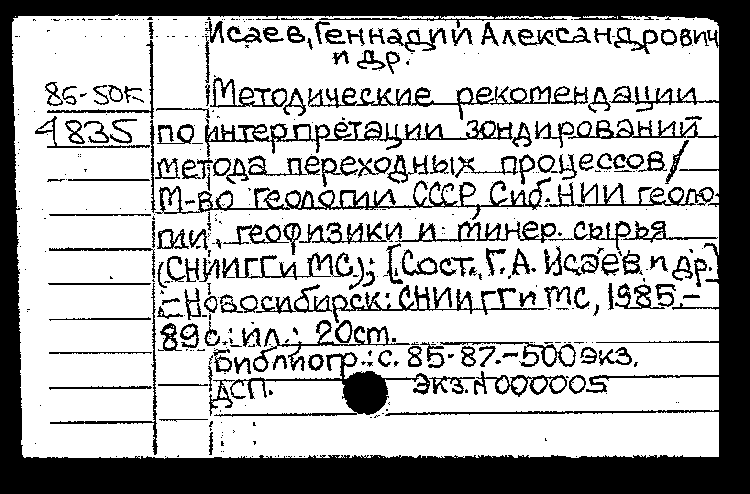 Исаев, Геннадий Александрович
и др.
86-50К Методические рекомендации
4835 по интерпретации зондирований
метода переходных процессов /
М-во геологии СССР, Сиб. НИИ геоло-
гии, геофизики и минер. сырья
(СНИИГГиМС); [Сост. Г.А. Исаев и др.]
.- Новосибирск: СНИИГГиМС, 1985.-
89 с.: ил.; 20 ст.
Библиогр.: с. 85-87.-500 экз.
ДСП. Экз. N 000005